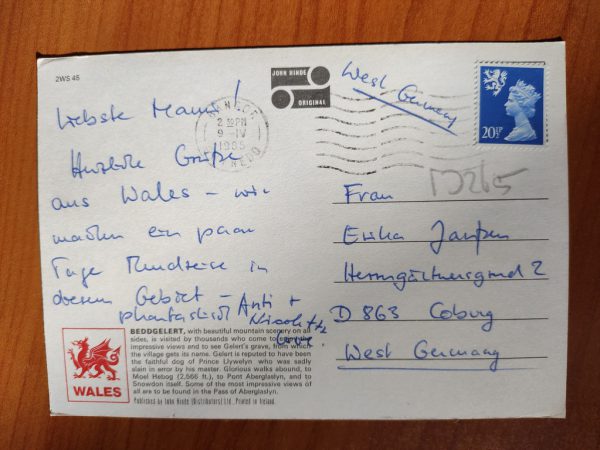 2WS 45
JOHN HINDE
ORIGINAL
West Germany
20½P
Liebste Mami!
Herzliche Grüße
aus Wales – wir
machen ein paar
Tage Rundreise in
diesem Gebiet –
phantastisch
Anti +
Nicolette
GWYNEDD
2 30 PM
9 – IV
1985
Frau
Erika Janßen
Herrngärtnersgrund 2
D 863 Coburg
West Germany
BEDDGELERT, with beautiful mountain scenery on all
sides, is visited by thousands who come to enjoy the
impressive views and to see Gelert's grave, from which
the village gets its name. Gelert is reputed to have been
the faithful dog of Prince Llywelyn who was sadly
slain in error by his master. Glorious walks abound, to
Moel Hebog (2,566 ft.), to Pont Aberglaslyn, and to
Snowdon itself. Some of the most impressive views of
all are to be found in the Pass of Aberglaslyn.
Published by John Hinde (Distributors) Ltd., Printed in Ireland.
WALES